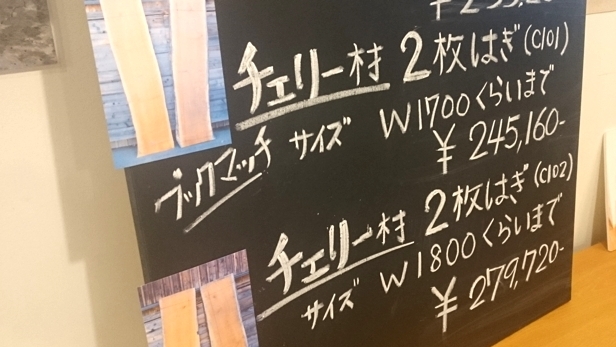 チェリー村 2枚はぎ(C101)
ブックマッチ サイズ W1700くらいまで
¥245,160-
チェリー村 2枚はぎ(C102)
サイズ W1800くらいまで
¥279,720-